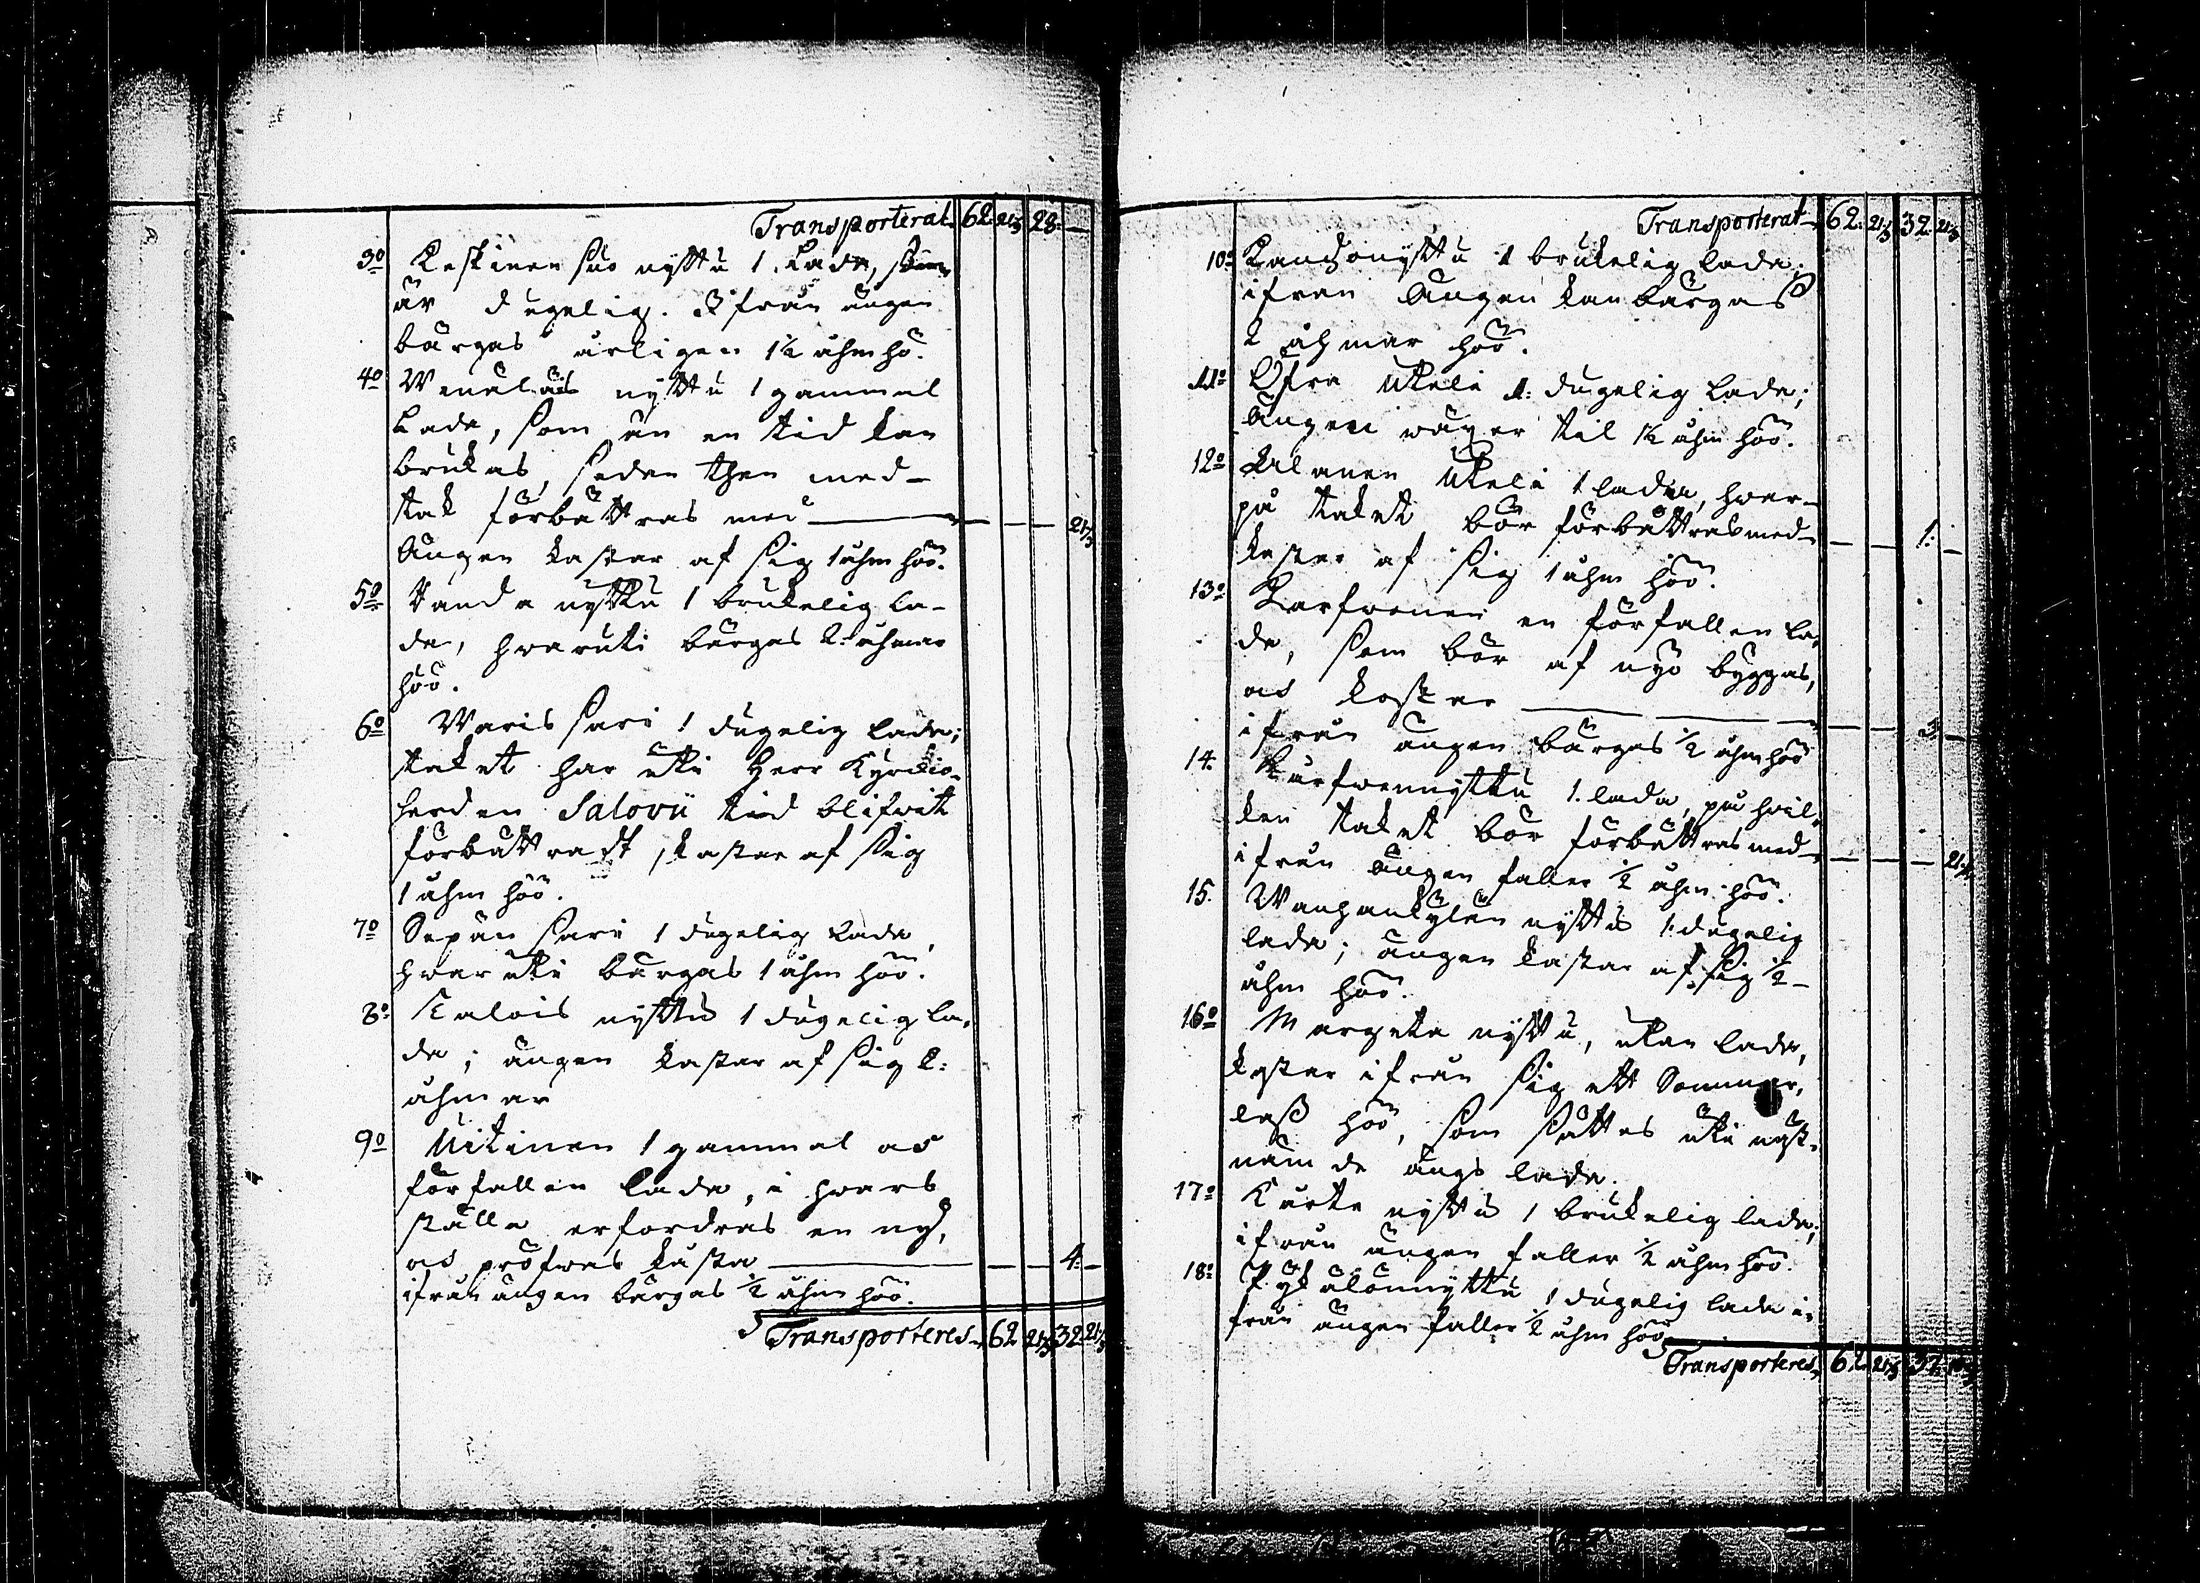 Transporterat 62. 21⅓ 28. —
3º Keskinen suo nyttu 1. Lada, som
är dugelig. Ifrån ängen
bärgas årligen 1½ åhm hö.
4º nyttu 1 gammal
Lada, som än en tid kan
brukas, sedan then med
tak förbättras med — — — 21⅓
Ängen kastar af sig 1 åhm höö.
5º Vanda nyttu 1 brukelig la-
da, hvaruti bärgas 2. åhmar
höö.
6º Waris sari 1 dugelig lada;
taket har uti Herr Kyrckio-
herden Salovii tid blifwit
förbättradt, kastar af sig
1 åhm höö.
7º Sepän sari 1 dugelig Lada,
hvaruti bärgas 1 åhm höö.
8º Talvis nyttu 1 dugelig la-
da; ängen kastar af sig 2:
åhmar
9º Uitinen 1 gammal och
förfallen Lada, i hvars
ställe erfordras en ny,
och pröfwas kåsta — — — 4. —
ifrån ängen bärgas ½ åhm höö.
Transporteres 62 21⅓ 32. 21⅓
Transporterat 62. 21⅓ 32. 21⅓
10º 1 brukelig lada;
ifrån Ängen kan bärgas
2 åhmar höö.
11º Öfra Ukeli 1: dugelig Lada;
Ängen wäger til 1½ åhm höö.
12º Alanen Ukeli 1 lada, hvar-
på taket bör förbättras med — — 1: —
kastar af sig 1 åhm höö.
13º Karfwonen en förfallen la-
da, som bör af nyo byggas,
och kostar — — — 3 —
ifrån ängen bärgas ½ åhm höö
14. Karfwennyttu 1. lada, på hvil-
ken taket bör förbättras med — — — 21⅓
ifrån Ängen faller ½ åhm höö.
15. Wanhankylän nyttu 1. dugelig
lada; ängen kastar af sig ½
åhm höö.
16º Margeta nyttu, utan lada,
kastar ifrån sig ett Sommar-
lass höö, som sättes uti nyst-
nämde ängs lada.
17º Kurte nyttu 1 brukelig lada;
ifrån ängen faller ½ åhm höö.
18º 1 dugelig lada i-
från ängen faller ½ åhm höö
Transporteres 62. 21⅓ 37.